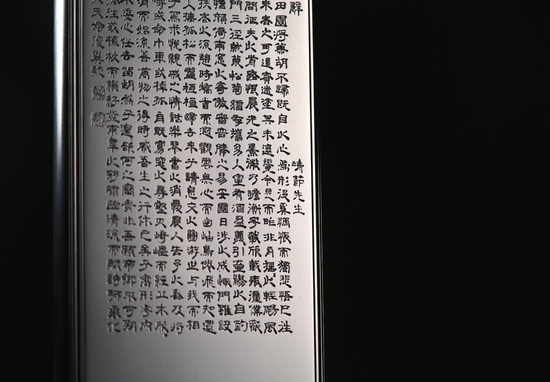 辭
靖節先生
田園將蕪胡不歸既自以心為形役奚惆悵而獨悲悟已往
來者之可追實迷塗其未遠覺今是而昨非舟搖以輕颺風
問征夫以前路恨晨光之熹微乃瞻衡宇載欣載奔僮僕歡
門三逕就荒松菊猶存攜幼入室有酒盈樽引壺觴以自酌
怡顏倚南窗以寄傲審容膝之易安園日涉以成趣門雖設
扶老以流憩時矯首而遐觀雲無心而出岫鳥倦飛而知還
入撫孤松而盤桓歸去來兮請息交以絕游世與我而相
焉求悅親戚之情話樂琴書以消憂農人告余以春及將
疇或命巾車或棹孤舟既窈窕以尋壑亦崎嶇而經丘木欣
涓而始流善萬物之得時感吾生之行休已矣乎寓形宇內
不委心任去留胡為乎遑欲何之富貴非吾願帝鄉不可期
孤往或植杖而耘耔登東皋以舒嘯臨清流而賦詩聊乘化
天命復奚疑